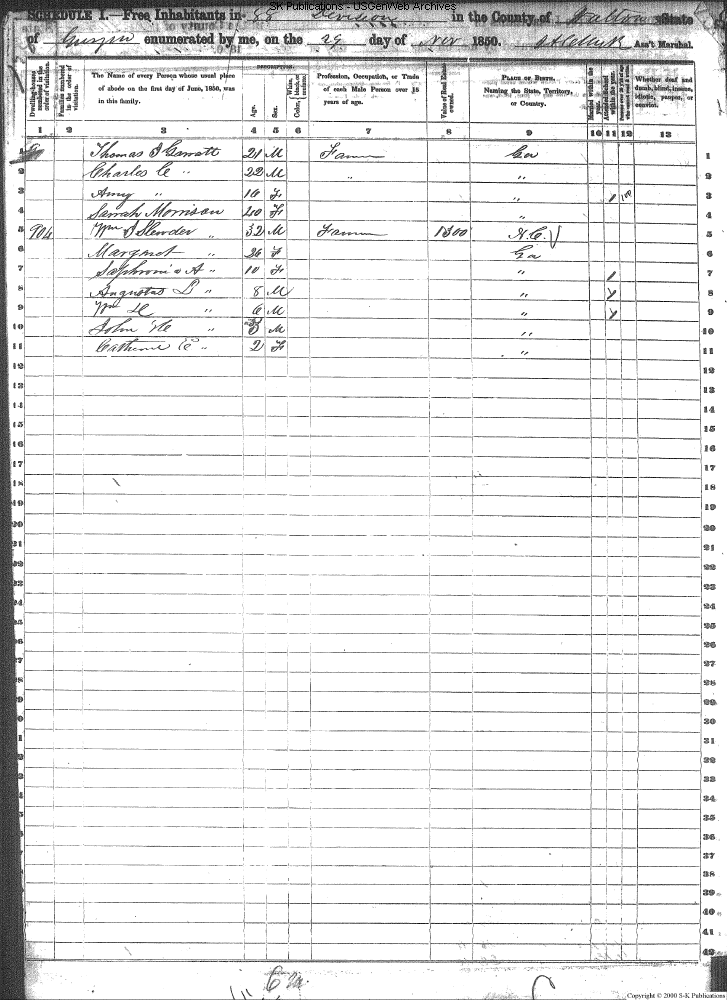 SK Publications - USGenWeb Archives
SCHEDULE I.—Free Inhabitants in 88 Division in the County of Walton State
of Georgia enumerated by me, on the 29 day of Nov 1850. Ass't Marshal.
DESCRIPTION.
Dwelling-houses numbered in the order of visitation.
Families numbered in the order of visitation.
The Name of every Person whose usual place of abode on the first day of June, 1850, was in this family.
Age.
Sex.
Color, White, black, or mulatto.
Profession, Occupation, or Trade of each Male Person over 15 years of age.
Value of Real Estate owned.
PLACE OF BIRTH. Naming the State, Territory, or Country.
Married within the year.
Attended School within the year.
Whether deaf and dumb, blind, insane, idiotic, pauper, or convict.
1 2 3 4 5 6 7 8 9 10 11 12 13
1 Thomas J Garratt 21 M Farmer Ga 1
2 Charles C " 22 M " " 2
3 Amy " 16 F " 1 3
4 Sarrah Morrison 40 F " 4
5 904 Wm S Slewder " 32 M Farmer 1300 N.C. 5
6 Margaret " 26 F Ga 6
7 Saphroni a A " 10 F " 1 7
8 Augustas L " 8 M " 1 8
9 Wm H " 6 M " 1 9
10 John " 3 M " 10
11 Catherine E " 2 F " 11
12 12
13 13
14 14
15 15
16 16
17 17
18 18
19 19
20 20
21 21
22 22
23 23
24 24
25 25
26 26
27 27
28 28
29 29
30 30
31 31
32 32
33 33
34 34
35 35
36 36
37 37
38 38
39 39
40 40
41 41
42 42
Copyright © 2000 S-K Publications